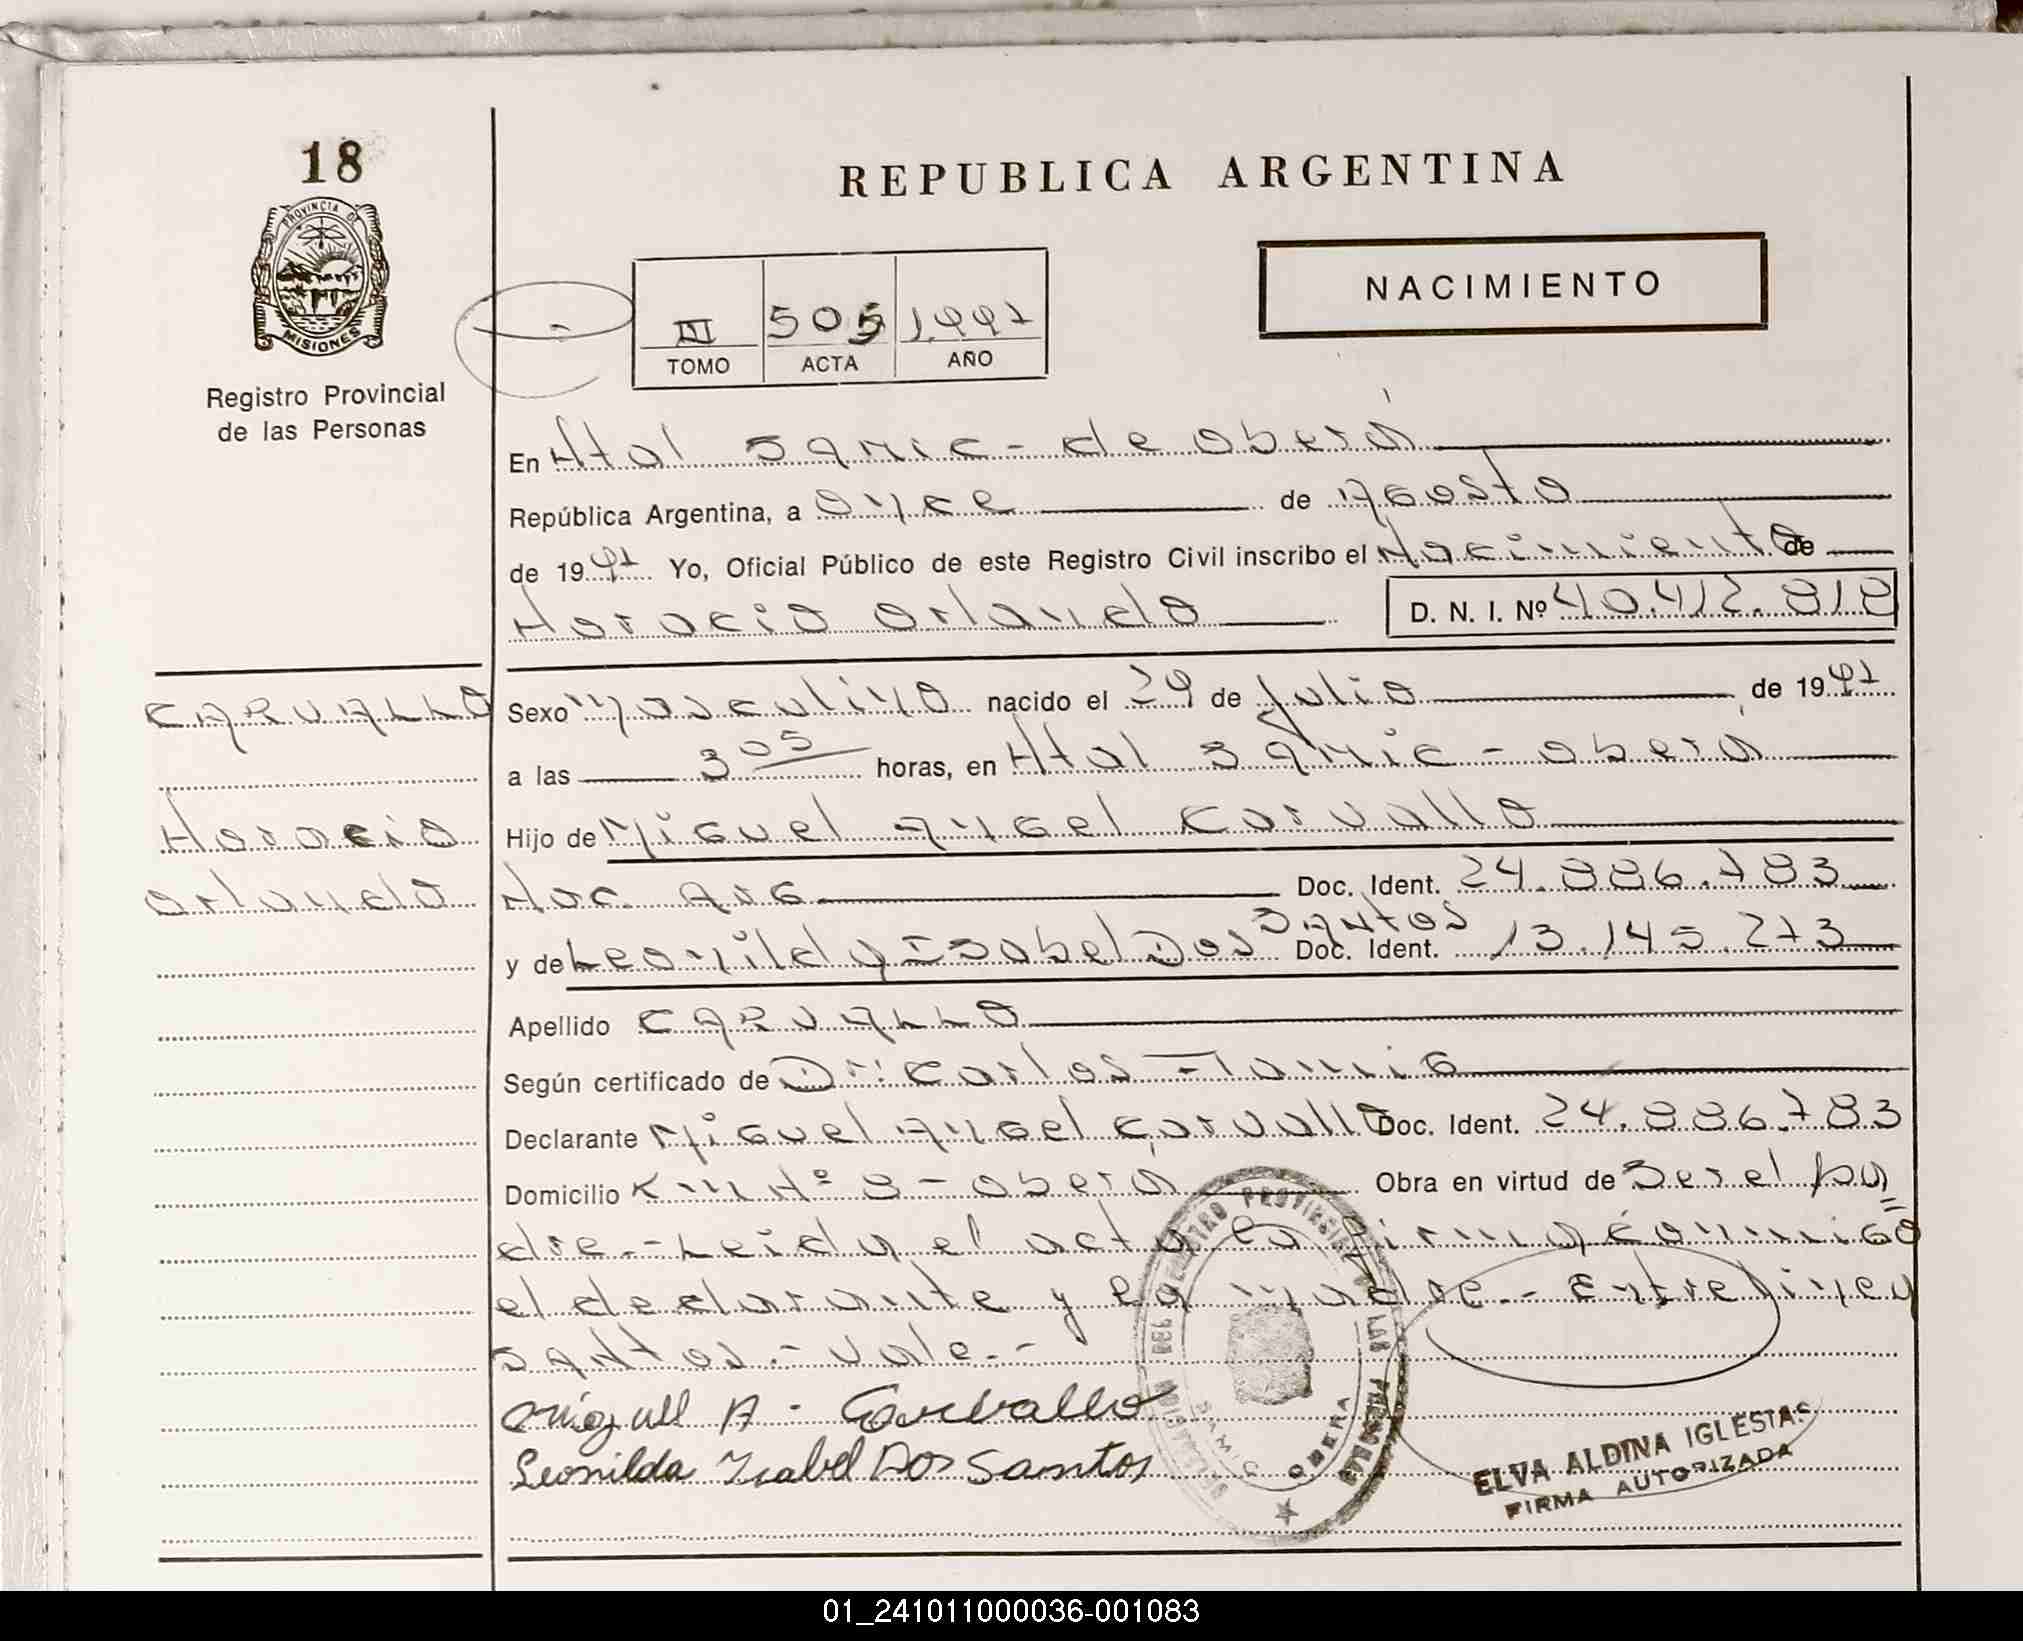 18
PROVINCIA DE
MISIONES
Registro Provincial
de las Personas
REPUBLICA ARGENTINA
NACIMIENTO
III 505 1.997
TOMO ACTA AÑO
En Htal Samic - de Oberá
República Argentina, a once de Agosto
de 1997 Yo, Oficial Público de este Registro Civil inscribo el Nacimiento de
Horacio Orlando D. N. I. Nº 40.412.818
CARVALLO
Horacio
Orlando
Sexo Masculino nacido el 29 de Julio de 1997
a las 3 05 horas, en Htal Samic - Oberá
Hijo de Miguel Angel Carvallo
Nac. Arg Doc. Ident. 24.886.783
Santos
y de Leonilda Isabel Dos Doc. Ident. 13.145.273
Apellido CARVALLO
Según certificado de Dr: Carlos
Declarante Miguel Angel Carvallo Doc. Ident. 24.886.783
Domicilio Km Nº 8 - Oberá Obra en virtud de Ser el pa
dre.- Leida el acta la firma conmigo
el declarante y la madre.- Entrelinea
Santos.- Vale.-
Miguell A. Carvallo
Leonilda Isabel Dos Santos
PROVINCIAL DE LAS PERSONAS
SAMIC OBERA
ELVA ALDINA IGLESIAS
FIRMA AUTORIZADA
01_241011000036-001083